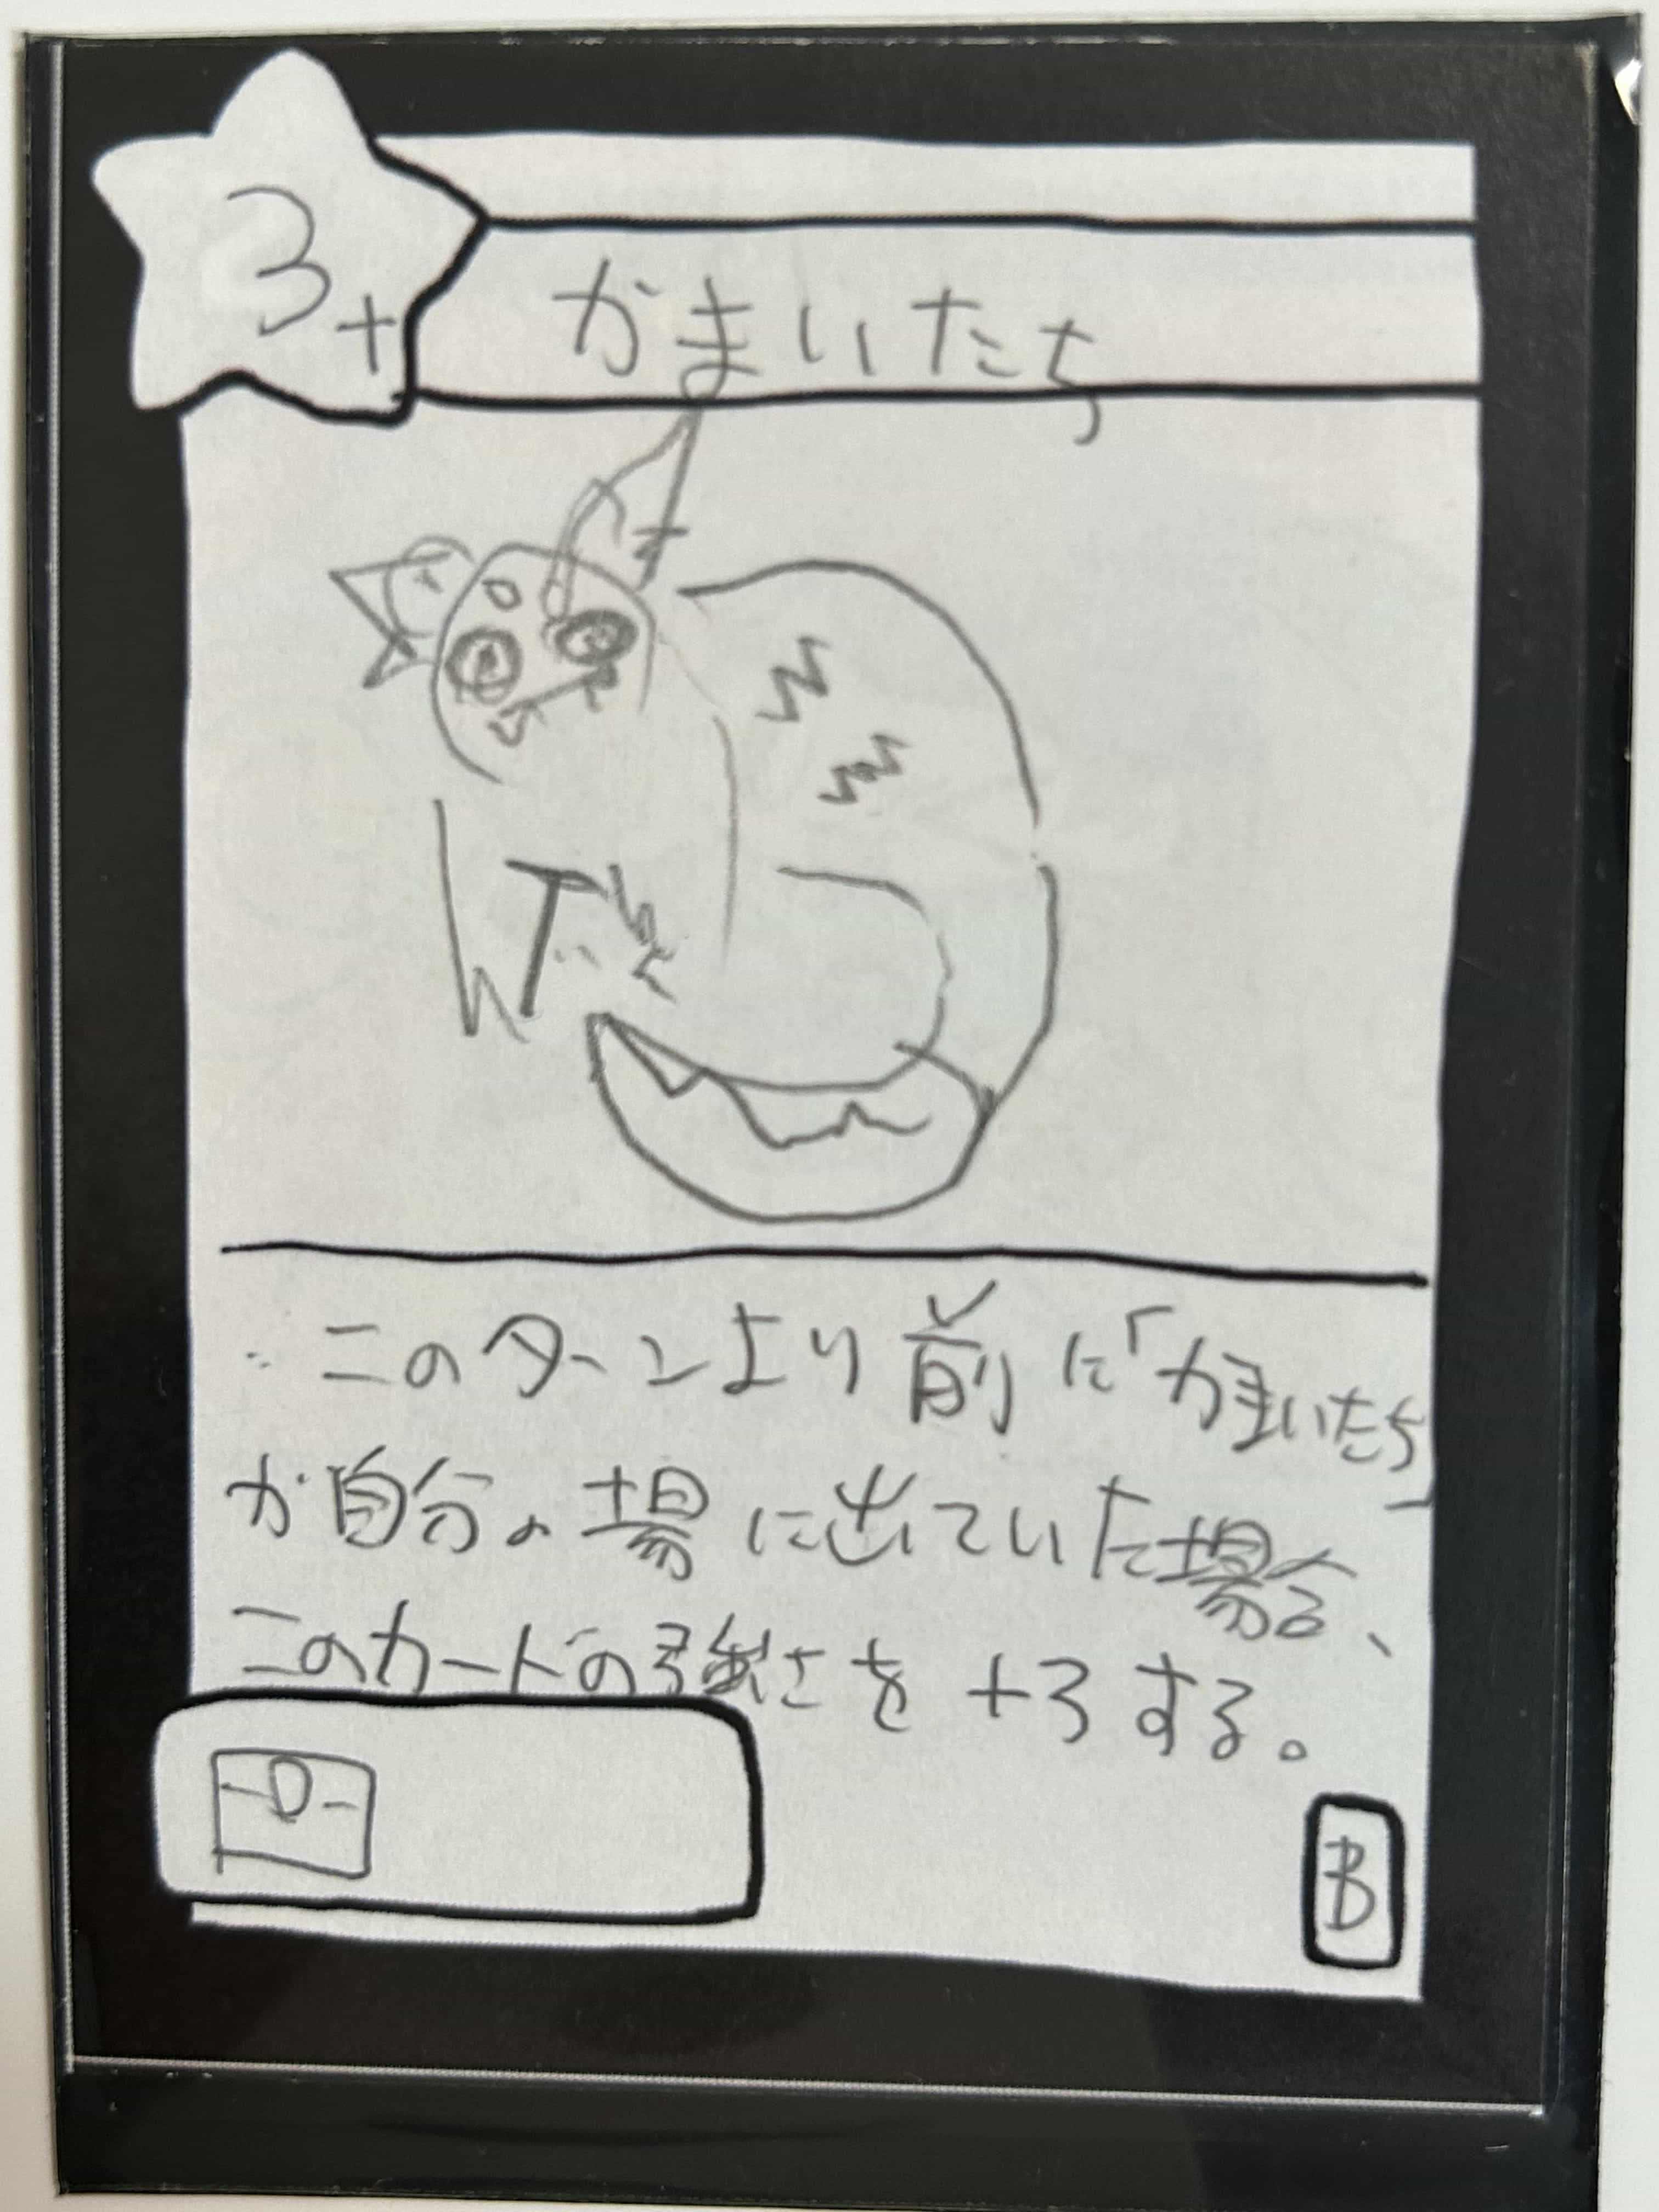 3+
かまいたち
このターンより前に「かまいたち」
が自分の場に出ていた場合、
このカードの強さを+3する。
B